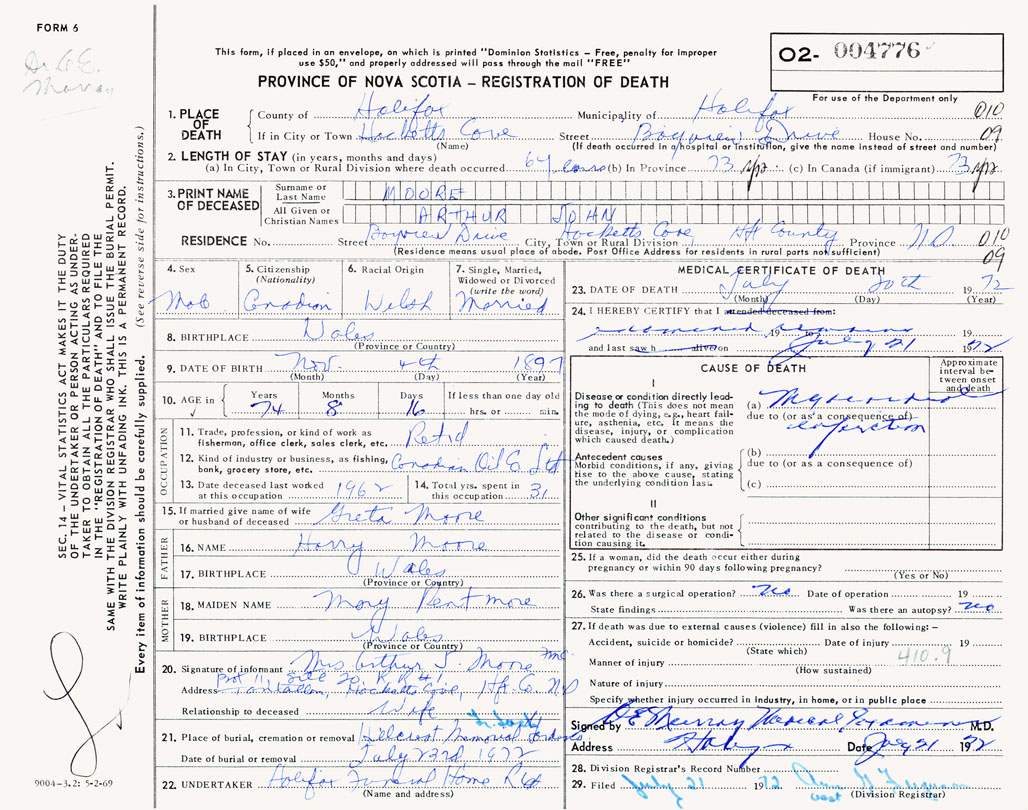 FORM 6
This form, if placed in an envelope, on which is printed "Dominion Statistics – Free, penalty for improper
use $50," and properly addressed will pass through the mail "FREE"
PROVINCE OF NOVA SCOTIA – REGISTRATION OF DEATH
O2- 004776
For use of the Department only
SEC. 14 – VITAL STATISTICS ACT MAKES IT THE DUTY
OF THE UNDERTAKER OR PERSON ACTING AS UNDER-
TAKER TO OBTAIN ALL THE PARTICULARS REQUIRED
IN THE "REGISTRATION OF DEATH" AND TO FILE THE
SAME WITH THE DIVISION REGISTRAR WHO SHALL ISSUE THE BURIAL PERMIT.
WRITE PLAINLY WITH UNFADING INK. THIS IS A PERMANENT RECORD.
Every item of information should be carefully supplied. (See reverse side for instructions.)
1. PLACE OF DEATH
County of Halifax Municipality of Halifax 010
If in City or Town Hacketts Cove Street Bayview Drive House No. 09
(Name) (If death occurred in a hospital or institution, give the name instead of street and number)
2. LENGTH OF STAY (in years, months and days)
(a) In City, Town or Rural Division where death occurred 64 (b) In Province 73 yrs (c) In Canada (if immigrant) 73 yrs
3. PRINT NAME OF DECEASED
Surname or Last Name MOORE
All Given or Christian Names ARTHUR JOHN
RESIDENCE No. Street Bayview Drive City, Town or Rural Division Hacketts Cove Hfx County Province N.S. 010
(Residence means usual place of abode. Post Office Address for residents in rural parts not sufficient) 09
4. Sex 5. Citizenship (Nationality) 6. Racial Origin 7. Single, Married, Widowed or Divorced (write the word)
Male Canadian Welsh Married
8. BIRTHPLACE Wales
(Province or Country)
9. DATE OF BIRTH Nov. 4th 1897
(Month) (Day) (Year)
10. AGE in Years Months Days If less than one day old
74 8 16 hrs. or min.
OCCUPATION
11. Trade, profession, or kind of work as fisherman, office clerk, sales clerk, etc. Retrd
12. Kind of industry or business, as fishing, bank, grocery store, etc. Canadian Oil Co. Ltd
13. Date deceased last worked at this occupation 1962 14. Total yrs. spent in this occupation 31
15. If married give name of wife or husband of deceased Greta Moore
FATHER
16. NAME Harry Moore
17. BIRTHPLACE Wales
(Province or Country)
MOTHER
18. MAIDEN NAME Mary
19. BIRTHPLACE Wales
(Province or Country)
20. Signature of informant Mrs Arthur J. Moore
Address Site 20, R.R.#1
Tantallon, Hacketts Cove, Hfx. Co. N.S
Relationship to deceased Wife
21. Place of burial, cremation or removal Hillcrest Memorial Gardens
Date of burial or removal July 23rd 1972
22. UNDERTAKER Halifax Funeral Home
(Name and address)
9004-3.2: 5-2-69
MEDICAL CERTIFICATE OF DEATH
23. DATE OF DEATH July 20th 1972
(Month) (Day) (Year)
24. I HEREBY CERTIFY that I attended deceased from:
examined 19 to 19
and last saw h alive on July 21 1972
CAUSE OF DEATH
Approximate interval between onset and death
I
Disease or condition directly leading to death (This does not mean the mode of dying, e.g., heart failure, asthenia, etc. It means the disease, injury, or complication which caused death.)
(a) Myocardial
due to (or as a consequence of)
infarction
Antecedent causes
Morbid conditions, if any, giving rise to the above cause, stating the underlying condition last.
(b)
due to (or as a consequence of)
(c)
II
Other significant conditions
contributing to the death, but not related to the disease or condition causing it.
25. If a woman, did the death occur either during
pregnancy or within 90 days following pregnancy?
(Yes or No)
26. Was there a surgical operation? no Date of operation 19
State findings Was there an autopsy? no
27. If death was due to external causes (violence) fill in also the following: –
Accident, suicide or homicide? Date of injury 19
(State which)
Manner of injury 410.9
(How sustained)
Nature of injury
Specify whether injury occurred in industry, in home, or in public place
Signed by D E Murray Medical Examiner M.D.
Address Halifax Date July 21 1972
28. Division Registrar's Record Number
29. Filed July 21 1972
(Division Registrar)